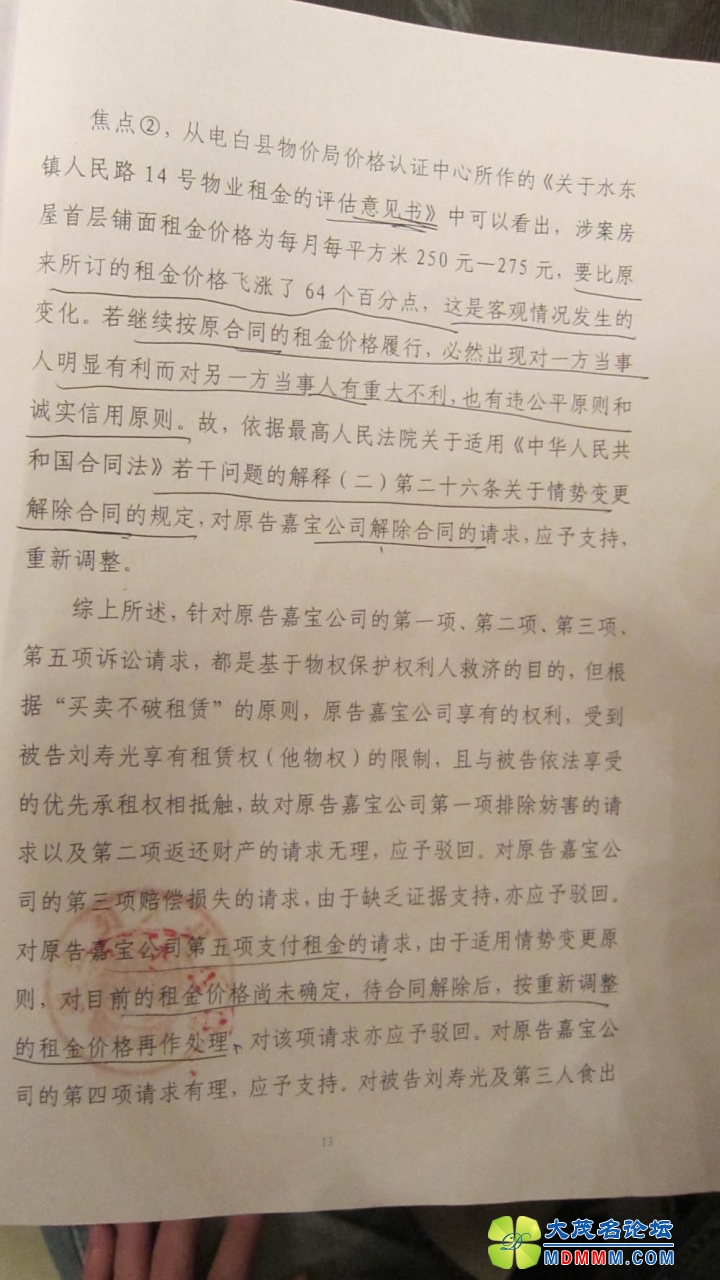 焦点②，从电白县物价局价格认证中心所作的《关于水东
镇人民路14号物业租金的评估意见书》中可以看出，涉案房
屋首层铺面租金价格为每月每平方米250元—275元，要比原
来所订的租金价格飞涨了64个百分点，这是客观情况发生的
变化。若继续按原合同的租金价格履行，必然出现对一方当事
人明显有利而对另一方当事人有重大不利，也有违公平原则和
诚实信用原则。故，依据最高人民法院关于适用《中华人民共
和国合同法》若干问题的解释（二）第二十六条关于情势变更
解除合同的规定，对原告嘉宝公司解除合同的请求，应予支持，
重新调整。
综上所述，针对原告嘉宝公司的第一项、第二项、第三项、
第五项诉讼请求，都是基于物权保护权利人救济的目的，但根
据“买卖不破租赁”的原则，原告嘉宝公司享有的权利，受到
被告刘寿光享有租赁权（他物权）的限制，且与被告依法享受
的优先承租权相抵触，故对原告嘉宝公司第一项排除妨害的请
求以及第二项返还财产的请求无理，应予驳回。对原告嘉宝公
司的第三项赔偿损失的请求，由于缺乏证据支持，亦应予驳回。
对原告嘉宝公司第五项支付租金的请求，由于适用情势变更原
则，对目前的租金价格尚未确定，待合同解除后，按重新调整
的租金价格再作处理，对该项请求亦应予驳回。对原告嘉宝公
司的第四项请求有理，应予支持。对被告刘寿光及第三人食出
13
大茂名论坛
MDMMM.COM